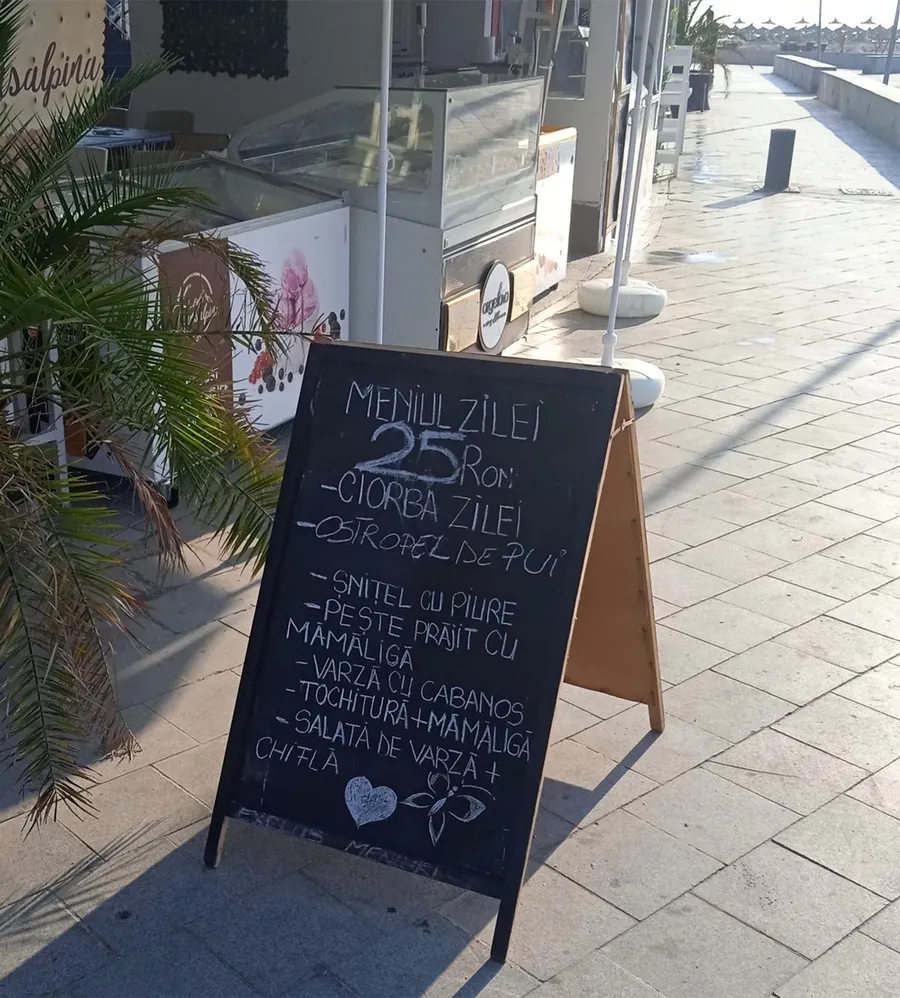 salpina
MENIUL ZILEI
25 RON
-CIORBA ZILEI
-OSTROPEL DE PUI
- ȘNIȚEL CU PIURE
- PEȘTE PRĂJIT CU
MĂMĂLIGĂ
-VARZĂ CU CABANOS
-TOCHITURĂ+MĂMĂLIGĂ
- SALATĂ DE VARZĂ +
CHIFLĂ